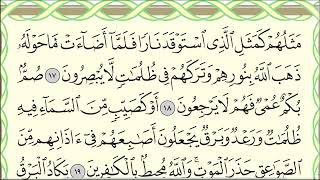 مَثَلُهُمْ كَمَثَلِ ٱلَّذِى ٱسْتَوْقَدَ نَارًا فَلَمَّآ أَضَآءَتْ مَا حَوْلَهُۥ
ذَهَبَ ٱللَّهُ بِنُورِهِمْ وَتَرَكَهُمْ فِى ظُلُمَٰتٍ لَّا يُبْصِرُونَ ١٧ صُمٌّۢ
بُكْمٌ عُمْىٌ فَهُمْ لَا يَرْجِعُونَ ١٨ أَوْ كَصَيِّبٍ مِّنَ ٱلسَّمَآءِ فِيهِ
ظُلُمَٰتٌ وَرَعْدٌ وَبَرْقٌ يَجْعَلُونَ أَصَٰبِعَهُمْ فِىٓ ءَاذَانِهِم مِّنَ
ٱلصَّوَٰعِقِ حَذَرَ ٱلْمَوْتِ وَٱللَّهُ مُحِيطٌۢ بِٱلْكَٰفِرِينَ ١٩ يَكَادُ ٱلْبَرْقُ